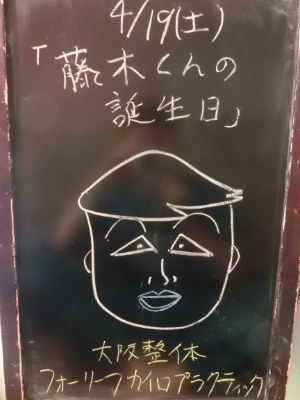 4/19(土)
「藤木くんの
誕生日」
大阪整体
フォーリーフカイロプラクティック